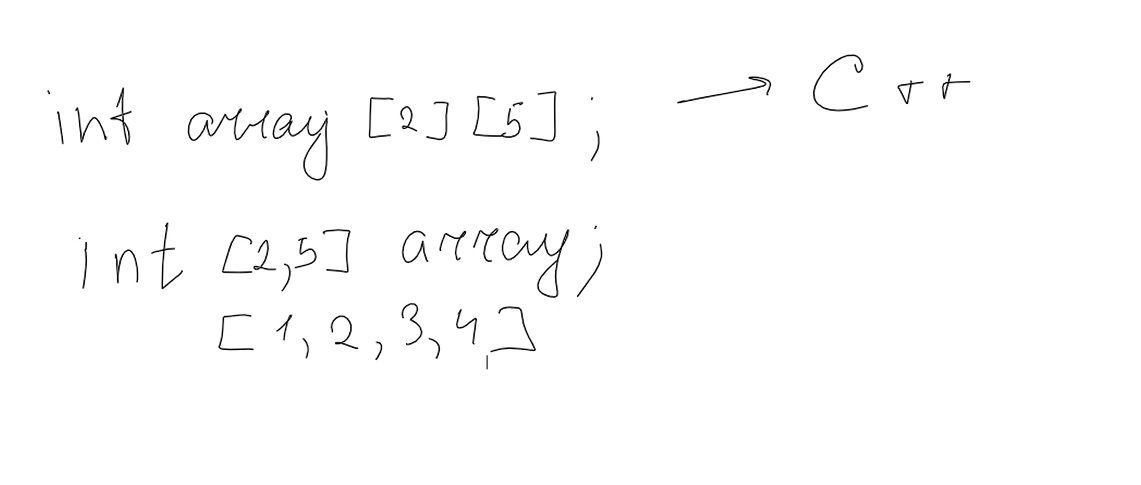 int array [2] [5] ; → C++
int [2,5] array;
[1, 2, 3, 4,]